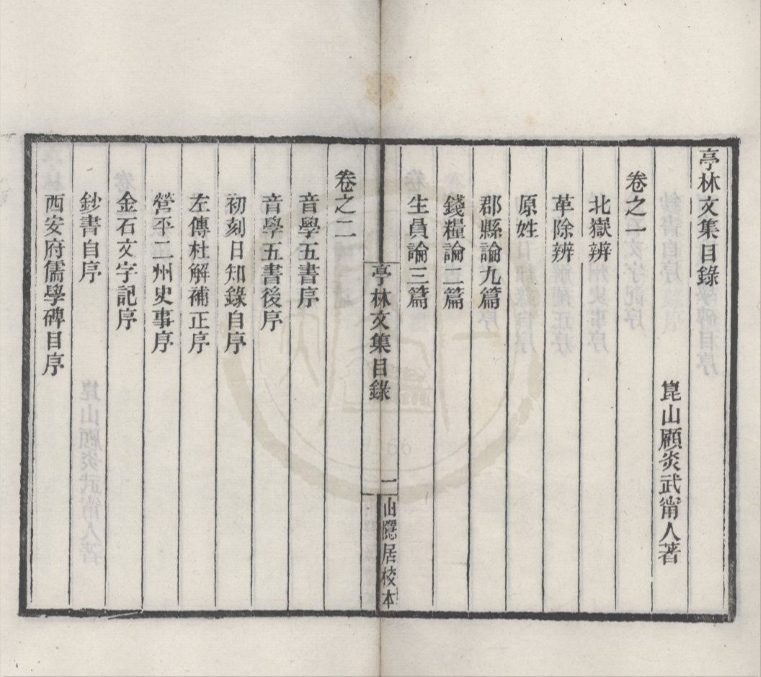 亭林文集目錄
崑山顧炎武甯人著
卷之一
北嶽辨
革除辨
原姓
郡縣論九篇
錢糧論二篇
生員論三篇
亭林文集目錄
一
山隱居校本
卷之二
音學五書序
音學五書後序
初刻日知錄自序
左傳杜解補正序
營平二州史事序
金石文字記序
鈔書自序
西安府儒學碑目序